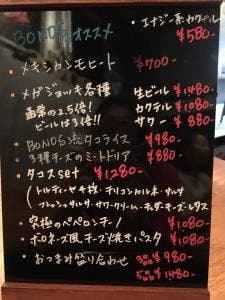 BONO'Sオススメ
・エナジー系カクテル
¥580-
・メキシカンモヒート ¥700-
・メガジョッキ各種
通常の2.5倍!
ビールは3倍!!
生ビール ¥1480-
カクテル ¥1080-
サワー ¥880-
・BONO'S流タコライス ¥980-
・3種チーズのミートドリア ¥880-
・タコスset ¥1280-
(トルティーヤ4枚・チリコンカルネ・サルサ
フレッシュサルサ・サワークリーム・チェダーチーズ・レタス
・究極のペペロンチーノ ¥1080-
・ボロネーズ風チーズ焼きパスタ ¥1080-
・おつまみ盛り合わせ 3品 ¥980-
5品 ¥1480-